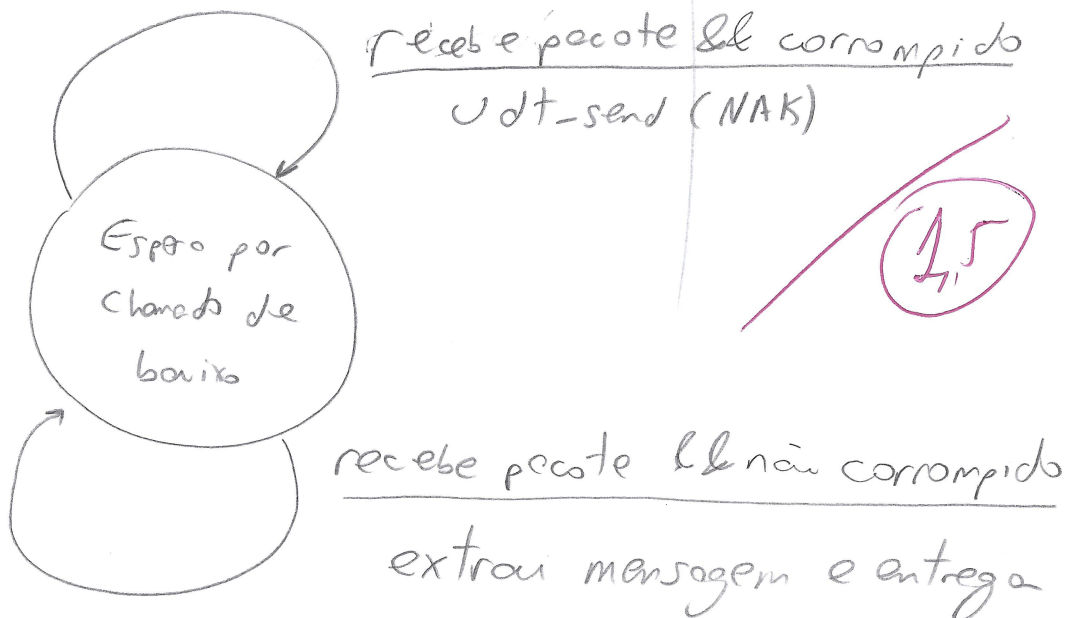 recebe pacote && corrompido
Udt_send (NAK)
1,5
Espera por
chamada de
baixo
recebe pacote && não corrompido
extrai mensagem e entrega